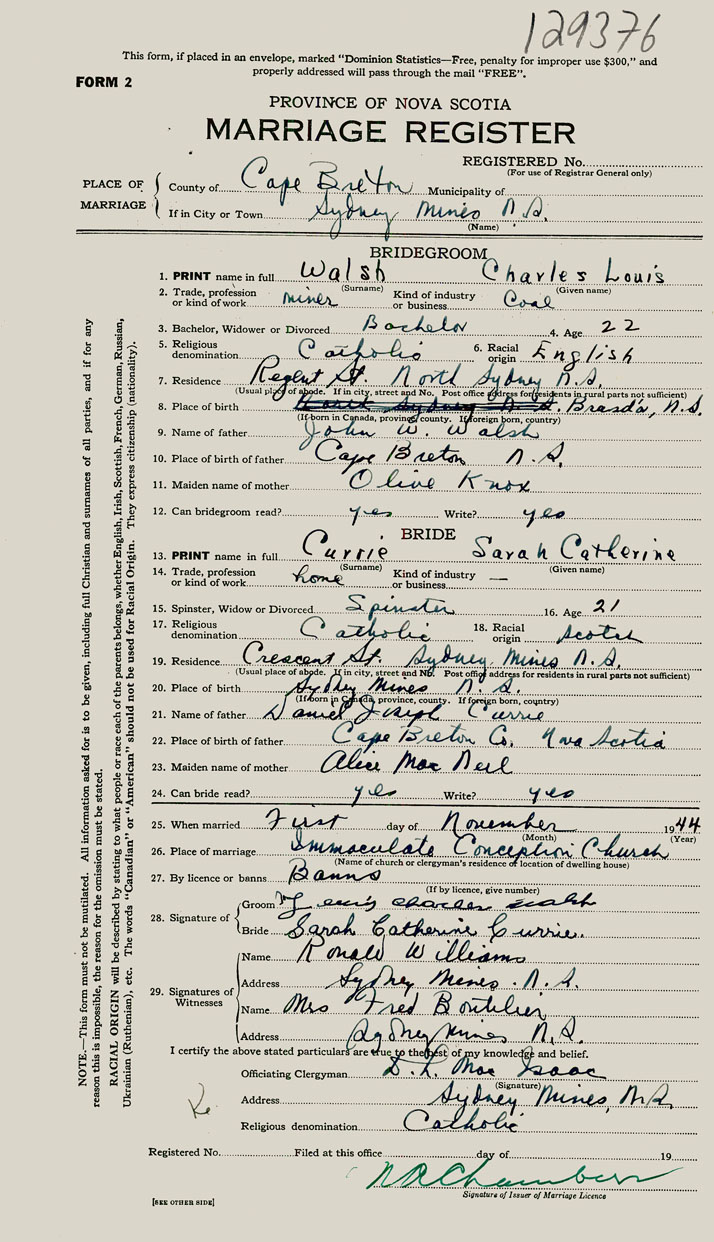 129376
This form, if placed in an envelope, marked “Dominion Statistics—Free, penalty for improper use $300,” and
properly addressed will pass through the mail “FREE”.
FORM 2
PROVINCE OF NOVA SCOTIA
MARRIAGE REGISTER
REGISTERED No.
(For use of Registrar General only)
PLACE OF MARRIAGE
County of Cape Breton Municipality of
If in City or Town Sydney Mines N.S.
(Name)
BRIDEGROOM
1. PRINT name in full Walsh Charles Louis
(Surname) (Given name)
2. Trade, profession or kind of work miner Kind of industry or business Coal
3. Bachelor, Widower or Divorced Bachelor 4. Age 22
5. Religious denomination Catholic 6. Racial origin English
7. Residence Regent St. North Sydney N.S.
(Usual place of abode. If in city, street and No. Post office address for residents in rural parts not sufficient)
8. Place of birth North Sydney N.S. Brasd'a, N.S.
(If born in Canada, province, county. If foreign born, country)
9. Name of father John W. Walsh
10. Place of birth of father Cape Breton N.S.
11. Maiden name of mother Olive Knox
12. Can bridegroom read? yes Write? yes
BRIDE
13. PRINT name in full Currie Sarah Catherine
(Surname) (Given name)
14. Trade, profession or kind of work home Kind of industry or business —
15. Spinster, Widow or Divorced Spinster 16. Age 21
17. Religious denomination Catholic 18. Racial origin Scotch
19. Residence Crescent St. Sydney Mines N.S.
(Usual place of abode. If in city, street and No. Post office address for residents in rural parts not sufficient)
20. Place of birth Sydney Mines N.S.
(If born in Canada, province, county. If foreign born, country)
21. Name of father Daniel Joseph Currie
22. Place of birth of father Cape Breton Co. Nova Scotia
23. Maiden name of mother Alice Mac Neil
24. Can bride read? yes Write? yes
25. When married First day of November 1944
(Month) (Year)
26. Place of marriage Immaculate Conception Church
(Name of church or clergyman's residence or location of dwelling house)
27. By licence or banns Banns
(If by licence, give number)
28. Signature of
Groom Louis Charles Walsh
Bride Sarah Catherine Currie.
29. Signatures of Witnesses
Name Ronald Williams
Address Sydney Mines. N.S.
Name Mrs Fred Boutilier
Address Sydney Mines N.S.
I certify the above stated particulars are true to the best of my knowledge and belief.
Officiating Clergyman D. L. Mac Isaac
(Signature)
Address Sydney Mines, N.S.
Religious denomination Catholic
Registered No. Filed at this office day of 19
Chambers
Signature of Issuer of Marriage Licence
[SEE OTHER SIDE]
NOTE.—This form must not be mutilated. All information asked for is to be given, including full Christian and surnames of all parties, and if for any
reason this is impossible, the reason for the omission must be stated.
RACIAL ORIGIN will be described by stating to what people or race each of the parents belongs, whether English, Irish, Scottish, French, German, Russian,
Ukrainian (Ruthenian), etc. The words “Canadian” or “American” should not be used for Racial Origin. They express citizenship (nationality).